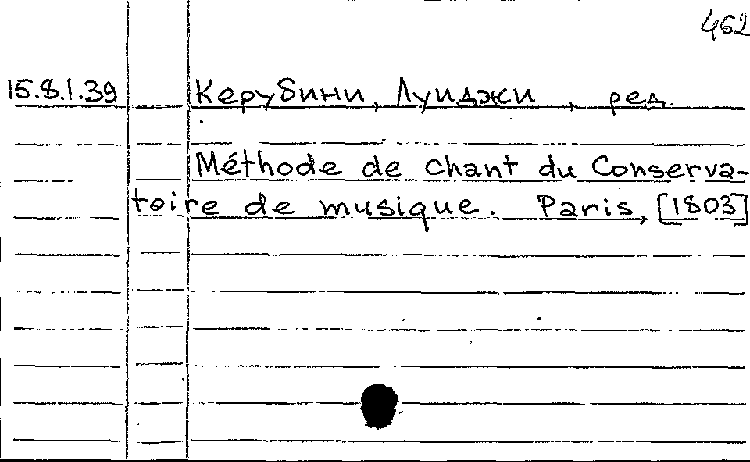 462
15.8.1.39 Керубини, Луиджи, ред.
Méthode de chant du Conserva-
toire de musique. Paris, [1803]